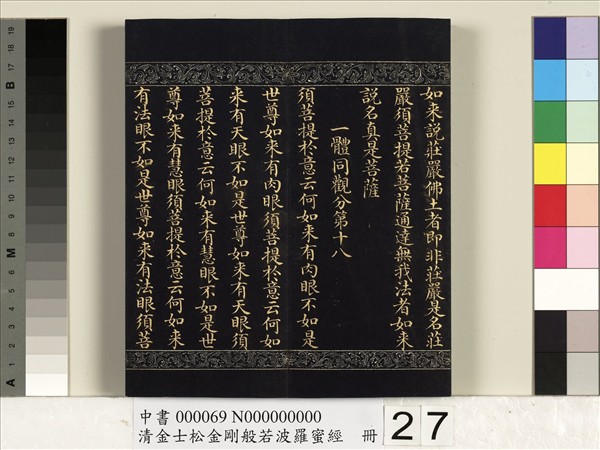 如来說莊嚴佛土者即非莊嚴是名莊
嚴須菩提若菩薩通達無我法者如来
說名真是菩薩
一體同觀分第十八
須菩提於意云何如来有肉眼不如是
世尊如来有肉眼須菩提於意云何如
来有天眼不如是世尊如来有天眼須
菩提於意云何如来有慧眼不如是世
尊如来有慧眼須菩提於意云何如来
有法眼不如是世尊如来有法眼須菩
中書 000069 N000000000
清金士松金剛般若波羅蜜經 冊
27
A 1 2 3 4 5 6 M 8 9 10 11 12 13 14 15 B 17 18 19